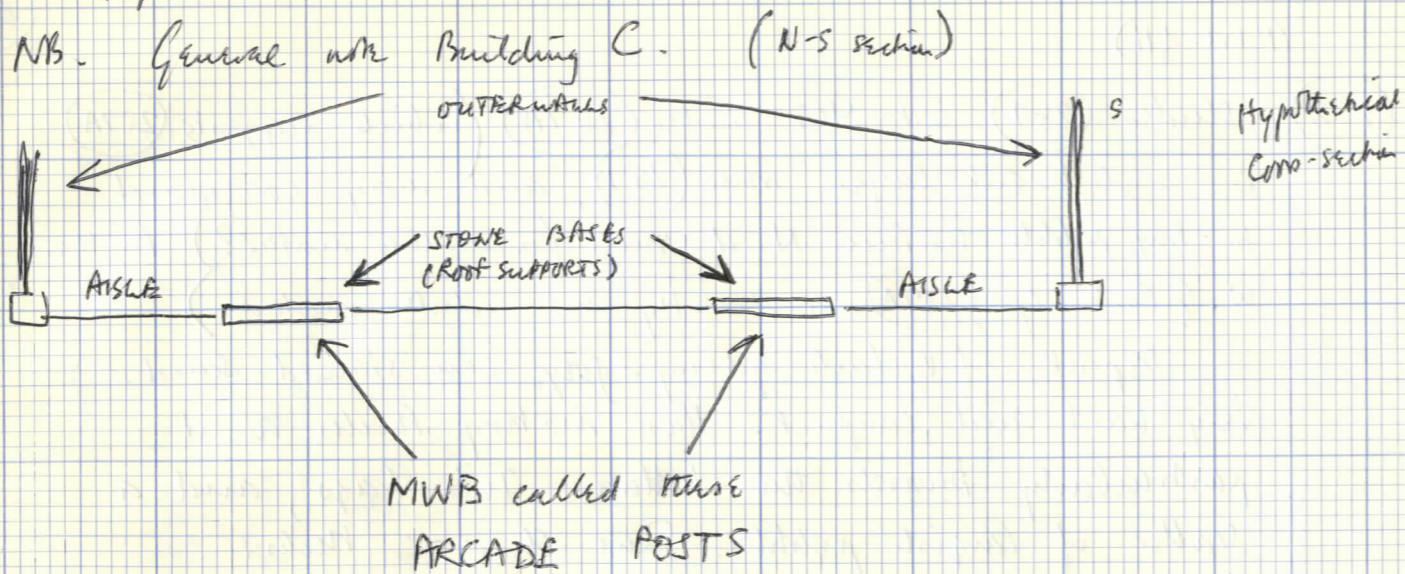 NB. General note Building C. (N-S section)
OUTERWALLS
S
Hypothetical
Cross-section
STONE BASES
(ROOF SUPPORTS)
AISLE
AISLE
MWB called these
ARCADE POSTS